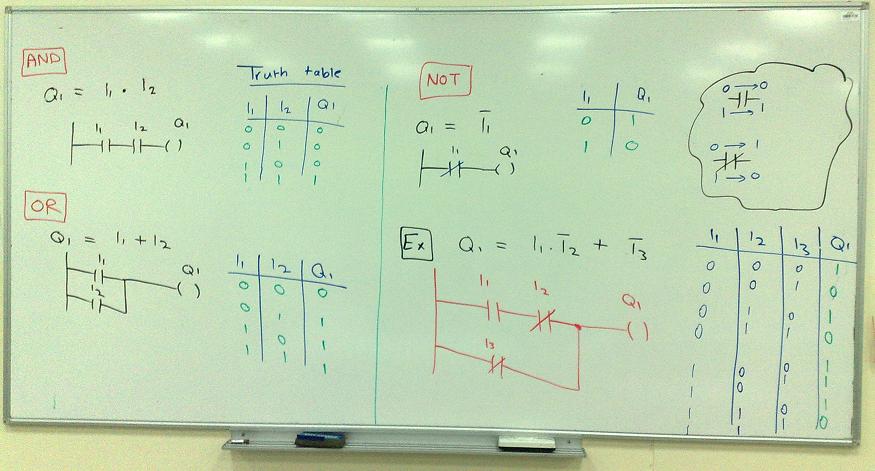 AND
Q₁ = I₁ . I₂
I₁ I₂ Q₁
( )
Truth table
I₁ I₂ Q₁
0 0 0
0 1 0
1 0 0
1 1 1
OR
Q₁ = I₁ + I₂
I₁
I₂
Q₁
( )
I₁ I₂ Q₁
0 0 0
0 1 1
1 0 1
1 1 1
NOT
Q₁ = I̅₁
I₁ Q₁
( )
I₁ Q₁
0 1
1 0
0 → 0
1 → 1
0 → 1
1 → 0
Ex
Q₁ = I₁ . I̅₂ + I̅₃
I₁ I₂ Q₁
( )
I₃
I₁ I₂ I₃ Q₁
0 0 0 1
0 0 1 0
0 1 0 1
0 1 1 0
1 0 0 1
1 0 1 1
1 1 0 1
1 1 1 0